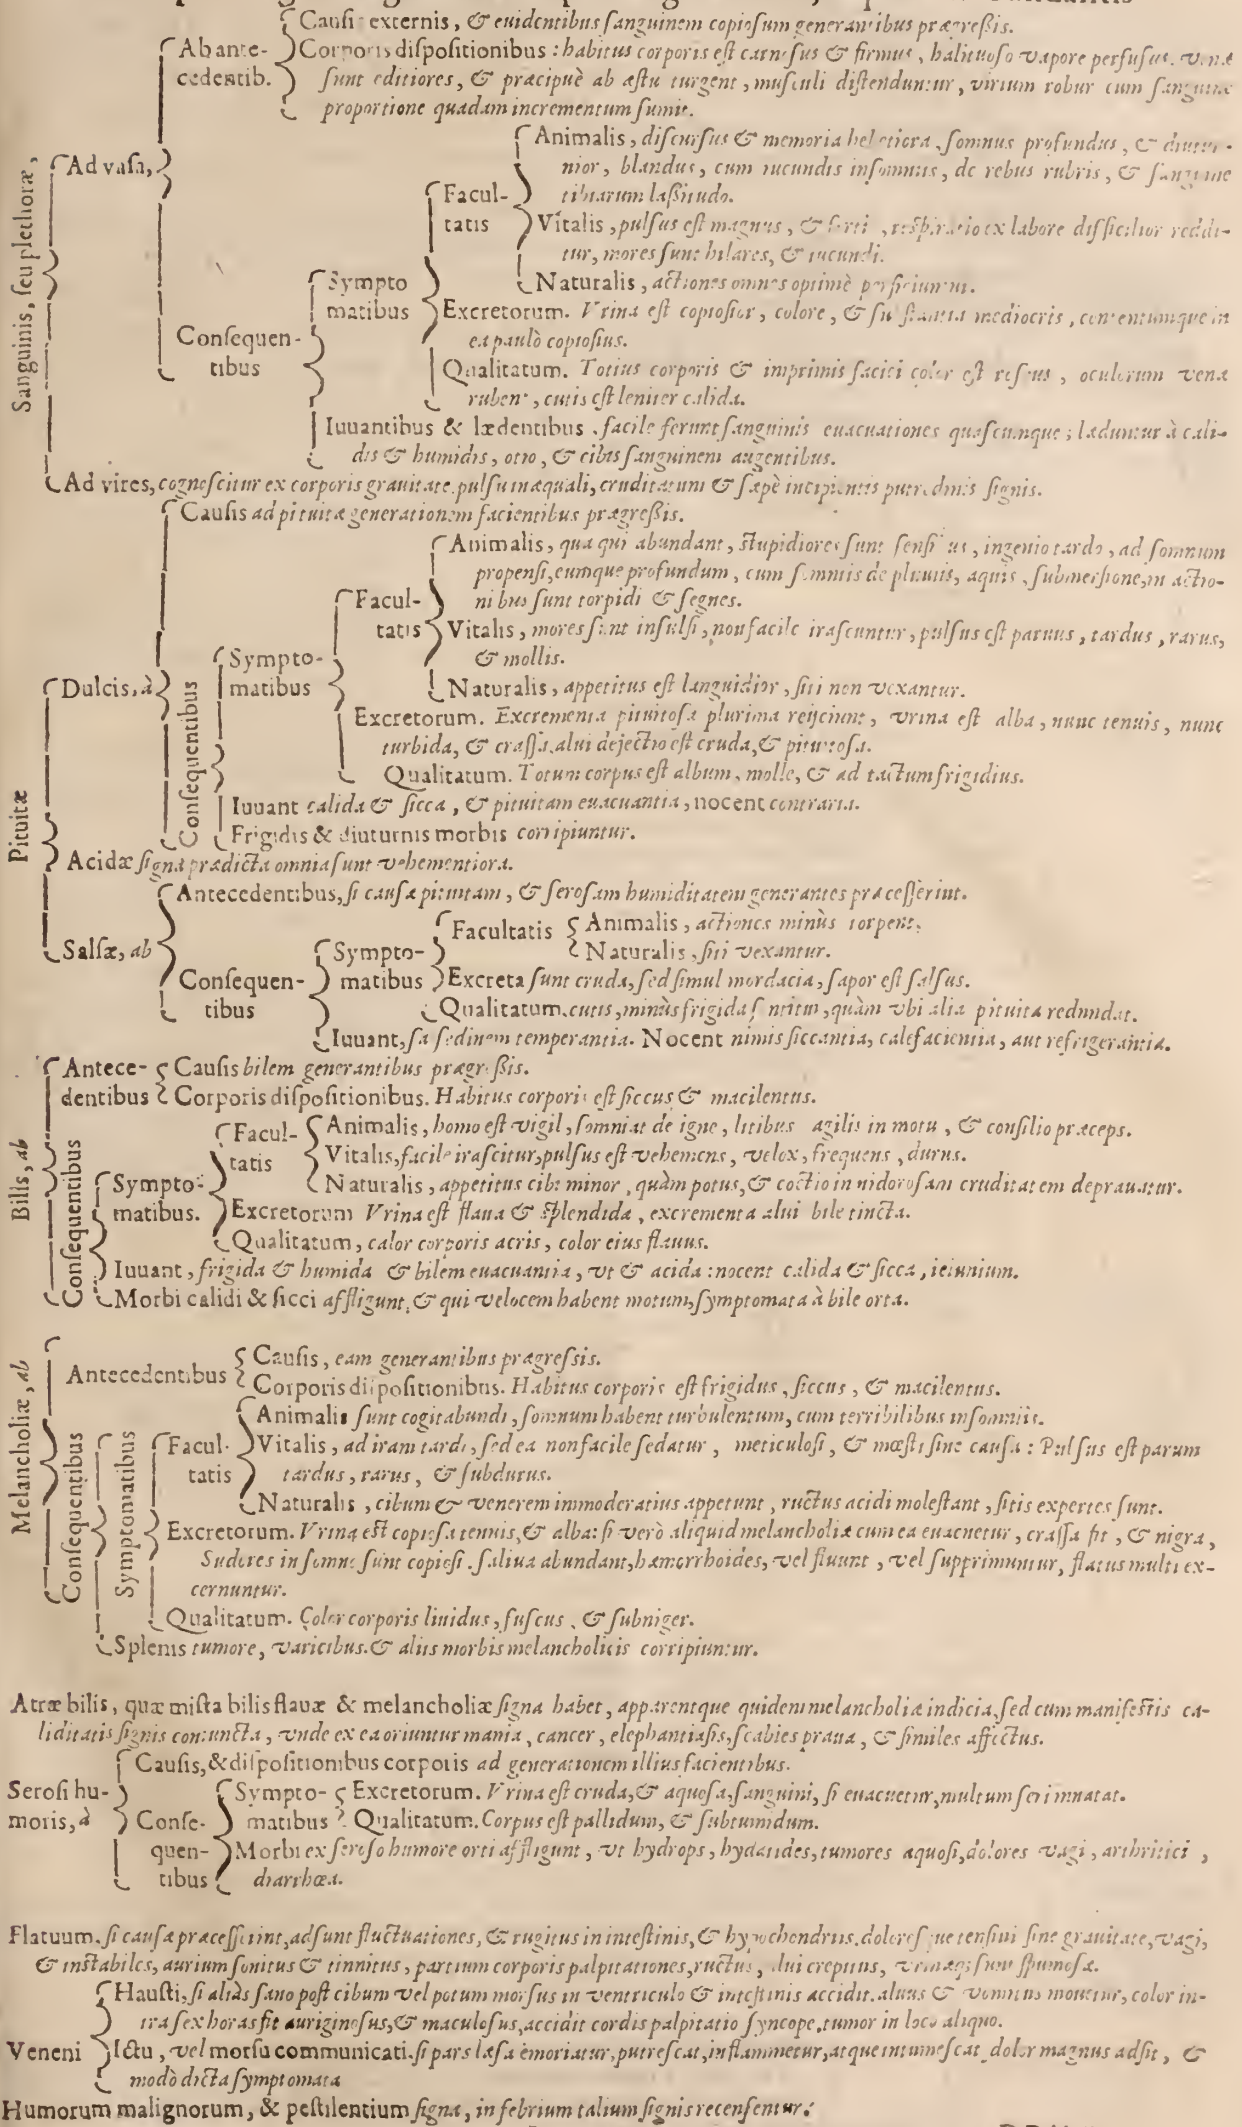 Causis externis, & euidentibus sanguinem copiosum generantibus prægressis.
Ab ante-
cedentib.
Corporis dispositionibus: habitus corporis est carnosus & firmus, halituoso vapore perfusus. venæ
sunt editiores, & præcipuè ab æstu turgent, musculi distenduntur, virium robur cum sanguine
proportione quadam incrementum sumit.
Sanguinis, seu plethoræ,
Ad vasa,
Animalis, discursus & memoria hebetiora, somnus profundus, & diutur-
nior, blandus, cum iucundis insomniis, de rebus rubris, & sanguine
tibiarum lassitudo.
Facul-
tatis
Vitalis, pulsus est magnus, & fortis, respiratio ex labore difficilior reddi-
tur, mores sunt hilares, & iucundi.
Naturalis, actiones omnes optimè perficiuntur.
Sympto
matibus
Excretorum. Vrina est copiosior, colore, & substantia mediocris, contentumque in
ea paulò copiosius.
Consequen-
tibus
Qualitatum. Totius corporis & imprimis faciei color est roseus, oculorum venæ
rubent, cutis est leniter calida.
Iuuantibus & lædentibus, facile ferunt sanguinis euacuationes quascumque; læduntur à cali-
dis & humidis, otio, & cibis sanguinem augentibus.
Ad vires, cognoscitur ex corporis grauitate, pulsu inæquali, cruditatum & sæpè incipientis putredinis signis.
Causis ad pituitæ generationem facientibus prægressis.
Animalis, qua qui abundant, stupidiores sunt sensibus, ingenio tardo, ad somnum
propensi, eumque profundum, cum somniis de pluuiis, aquis, submersione, in actio-
nibus sunt torpidi & segnes.
Facul-
tatis
Vitalis, mores sunt insulsi, non facile irascuntur, pulsus est paruus, tardus, rarus,
& mollis.
Naturalis, appetitus est languidior, siti non vexantur.
Sympto-
matibus
Dulcis, à
Consequentibus
Excretorum. Excrementa pituitosa plurima reijciunt, vrina est alba, nunc tenuis, nunc
turbida, & crassa, alui dejectio est cruda, & pituitosa.
Qualitatum. Totum corpus est album, molle, & ad tactum frigidius.
Iuuant calida & sicca, & pituitam euacuantia, nocent contraria.
Frigidis & diuturnis morbis corripiuntur.
Pituitæ
Acidæ signa prædicta omnia sunt vehementiora.
Antecedentibus, si causæ pituitam, & serosam humiditatem generantes præcesserint.
Salsæ, ab
Facultatis
Animalis, actiones minùs torpent.
Naturalis, siti vexantur.
Sympto-
matibus
Excreta sunt cruda, sed simul mordacia, sapor est salsus.
Consequen-
tibus
Qualitatum. cutis, minùs frigida sentitur, quàm vbi alia pituita redundat.
Iuuant, salsedinem temperantia. Nocent nimis siccantia, calefacientia, aut refrigerantia.
Bilis, ab
Antece-
dentibus
Causis bilem generantibus prægressis.
Corporis dispositionibus. Habitus corporis est siccus & macilentus.
Consequentibus
Sympto-
matibus.
Facul-
tatis
Animalis, homo est vigil, somniat de igne, litibus agilis in motu, & consilio præceps.
Vitalis, facile irascitur, pulsus est vehemens, velox, frequens, durus.
Naturalis, appetitus cibi minor, quàm potus, & coctio in nidorosam cruditatem deprauatur.
Excretorum Vrina est flaua & splendida, excrementa alui bile tincta.
Qualitatum, calor corporis acris, color eius flauus.
Iuuant, frigida & humida & bilem euacuantia, vt & acida: nocent calida & sicca, ieiunium.
Morbi calidi & sicci affligunt, & qui velocem habent motum, symptomata à bile orta.
Melancholiæ, ab
Antecedentibus
Causis, eam generantibus prægressis.
Corporis dispositionibus. Habitus corporis est frigidus, siccus, & macilentus.
Consequentibus
Symptomatibus
Facul-
tatis
Animalis sunt cogitabundi, somnum habent turbulentum, cum terribilibus insomniis.
Vitalis, ad iram tardi, sed ea non facile sedatur, meticulosi, & mœsti sine causa: Pulsus est parum
tardus, rarus, & subdurus.
Naturalis, cibum & venerem immoderatius appetunt, ructus acidi molestant, sitis expertes sunt.
Excretorum. Vrina est copiosa tennis, & alba: si verò aliquid melancholiæ cum ea euacuetur, crassa fit, & nigra,
Sudores in somno sunt copiosi. saliua abundant, hæmorrhoides, vel fluunt, vel supprimuntur, flatus multi ex-
cernuntur.
Qualitatum. Color corporis liuidus, fuscus, & subniger.
Splenis tumore, varicibus. & aliis morbis melancholicis corripiuntur.
Atræ bilis, quæ mista bilis flauæ & melancholiæ signa habet, apparentque quidem melancholiæ indicia, sed cum manifestis ca-
liditatis signis coniuncta, vnde ex ea oriuntur mania, cancer, elephantiasis, scabies praua, & similes affectus.
Serosi hu-
moris, à
Causis, & dispositionibus corporis ad generationem illius facientibus.
Conse-
quen-
tibus
Sympto-
matibus
Excretorum. Vrina est cruda, & aquosa, sanguini, si euacuetur, multum seri innatat.
Qualitatum. Corpus est pallidum, & subtumidum.
Morbi ex seroso humore orti affligunt, vt hydrops, hydatides, tumores aquosi, dolores vagi, arthritici,
diarrhœa.
Flatuum. si causæ præcesserint, adsunt fluctuationes, & rugitus in intestinis, & hypochondriis. doloresque tensiui sine grauitate, vagi,
& instabiles, aurium sonitus & tinnitus, partium corporis palpitationes, ructus, alui crepitus, vrinæq; sunt spumosæ.
Veneni
Hausti, si aliàs sano post cibum vel potum morsus in ventriculo & intestinis accidit. aluus & vomitus mouetur, color in-
tra sex horas fit auriginosus, & maculosus, accidit cordis palpitatio syncope, tumor in loco aliquo.
Ictu, vel morsu communicati. si pars læsa emoriatur, putrescat, inflammetur, atque intumescat, dolor magnus adsit, &
modò dicta symptomata
Humorum malignorum, & pestilentium signa, in febrium talium signis recensentur.